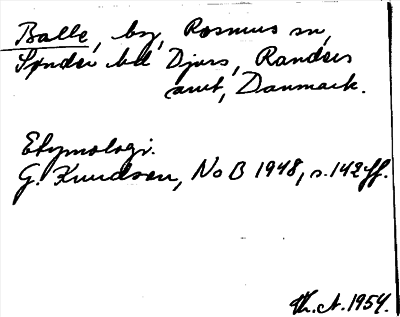 Balle, by, Rosmus sn,
Sønder hd Djurs, Randers
amt, Danmark.
Etymologi.
G. Knudsen, NoB 1948, s. 142 ff.
Th. A. 1954.